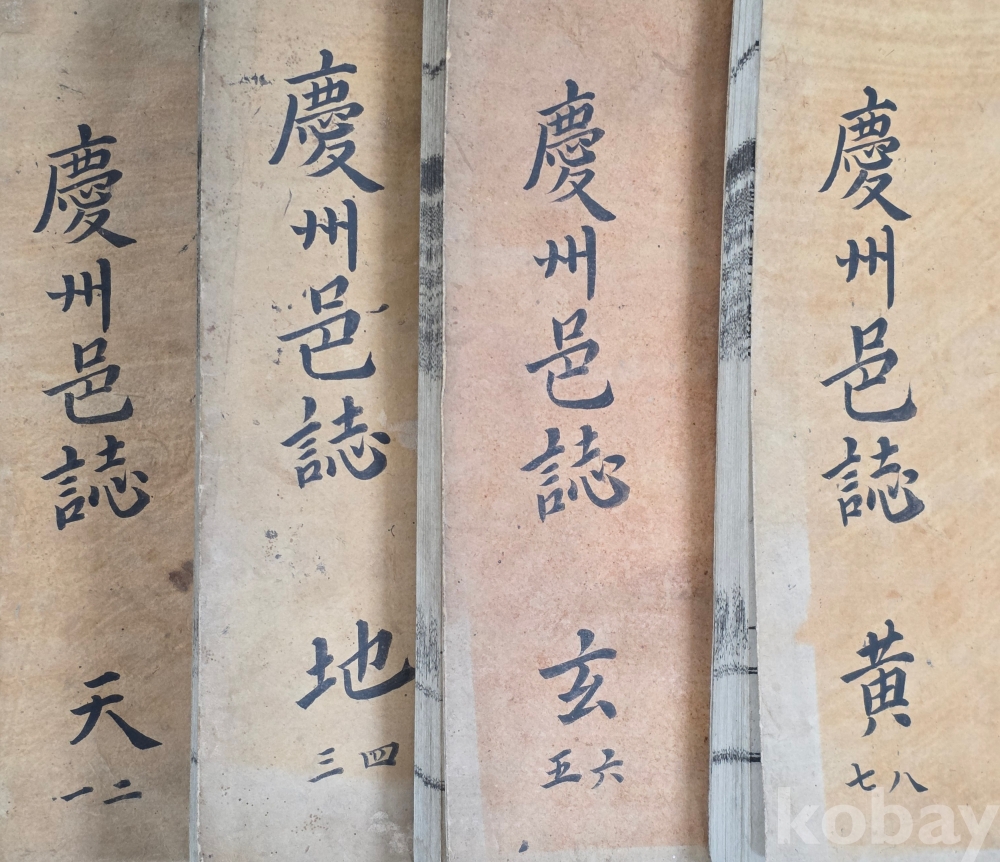 慶州邑誌
天
一二
慶州邑誌
地
三四
慶州邑誌
玄
五六
慶州邑誌
黄
七八
kobay